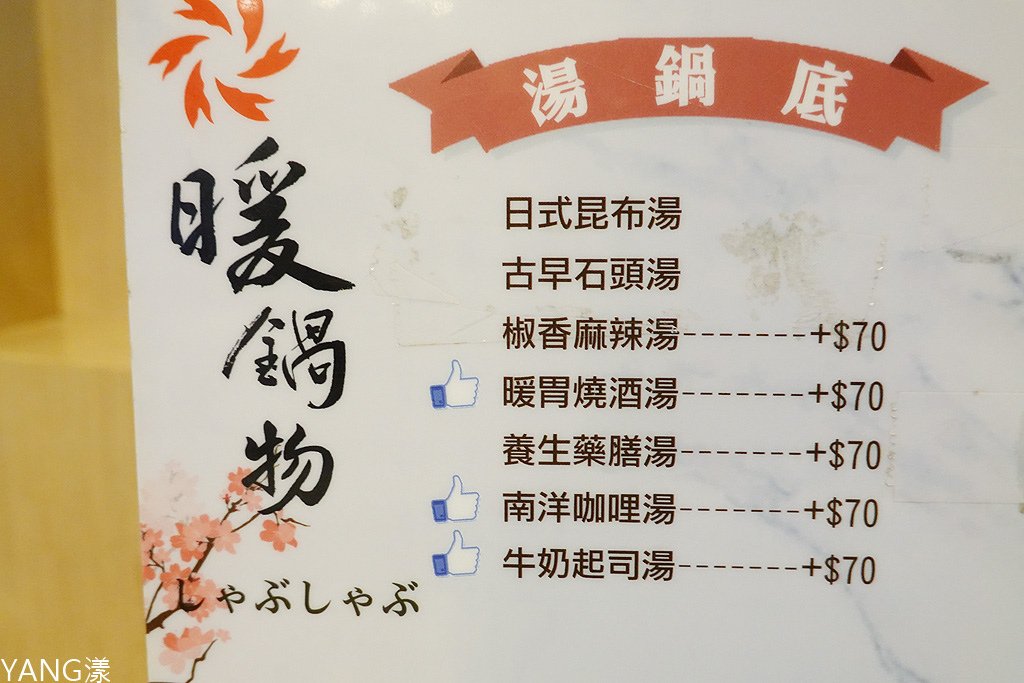 暖鍋物
しゃぶしゃぶ
湯鍋底
日式昆布湯
古早石頭湯
椒香麻辣湯-------+$70
暖胃燒酒湯-------+$70
養生藥膳湯-------+$70
南洋咖哩湯-------+$70
牛奶起司湯-------+$70
YANG漾